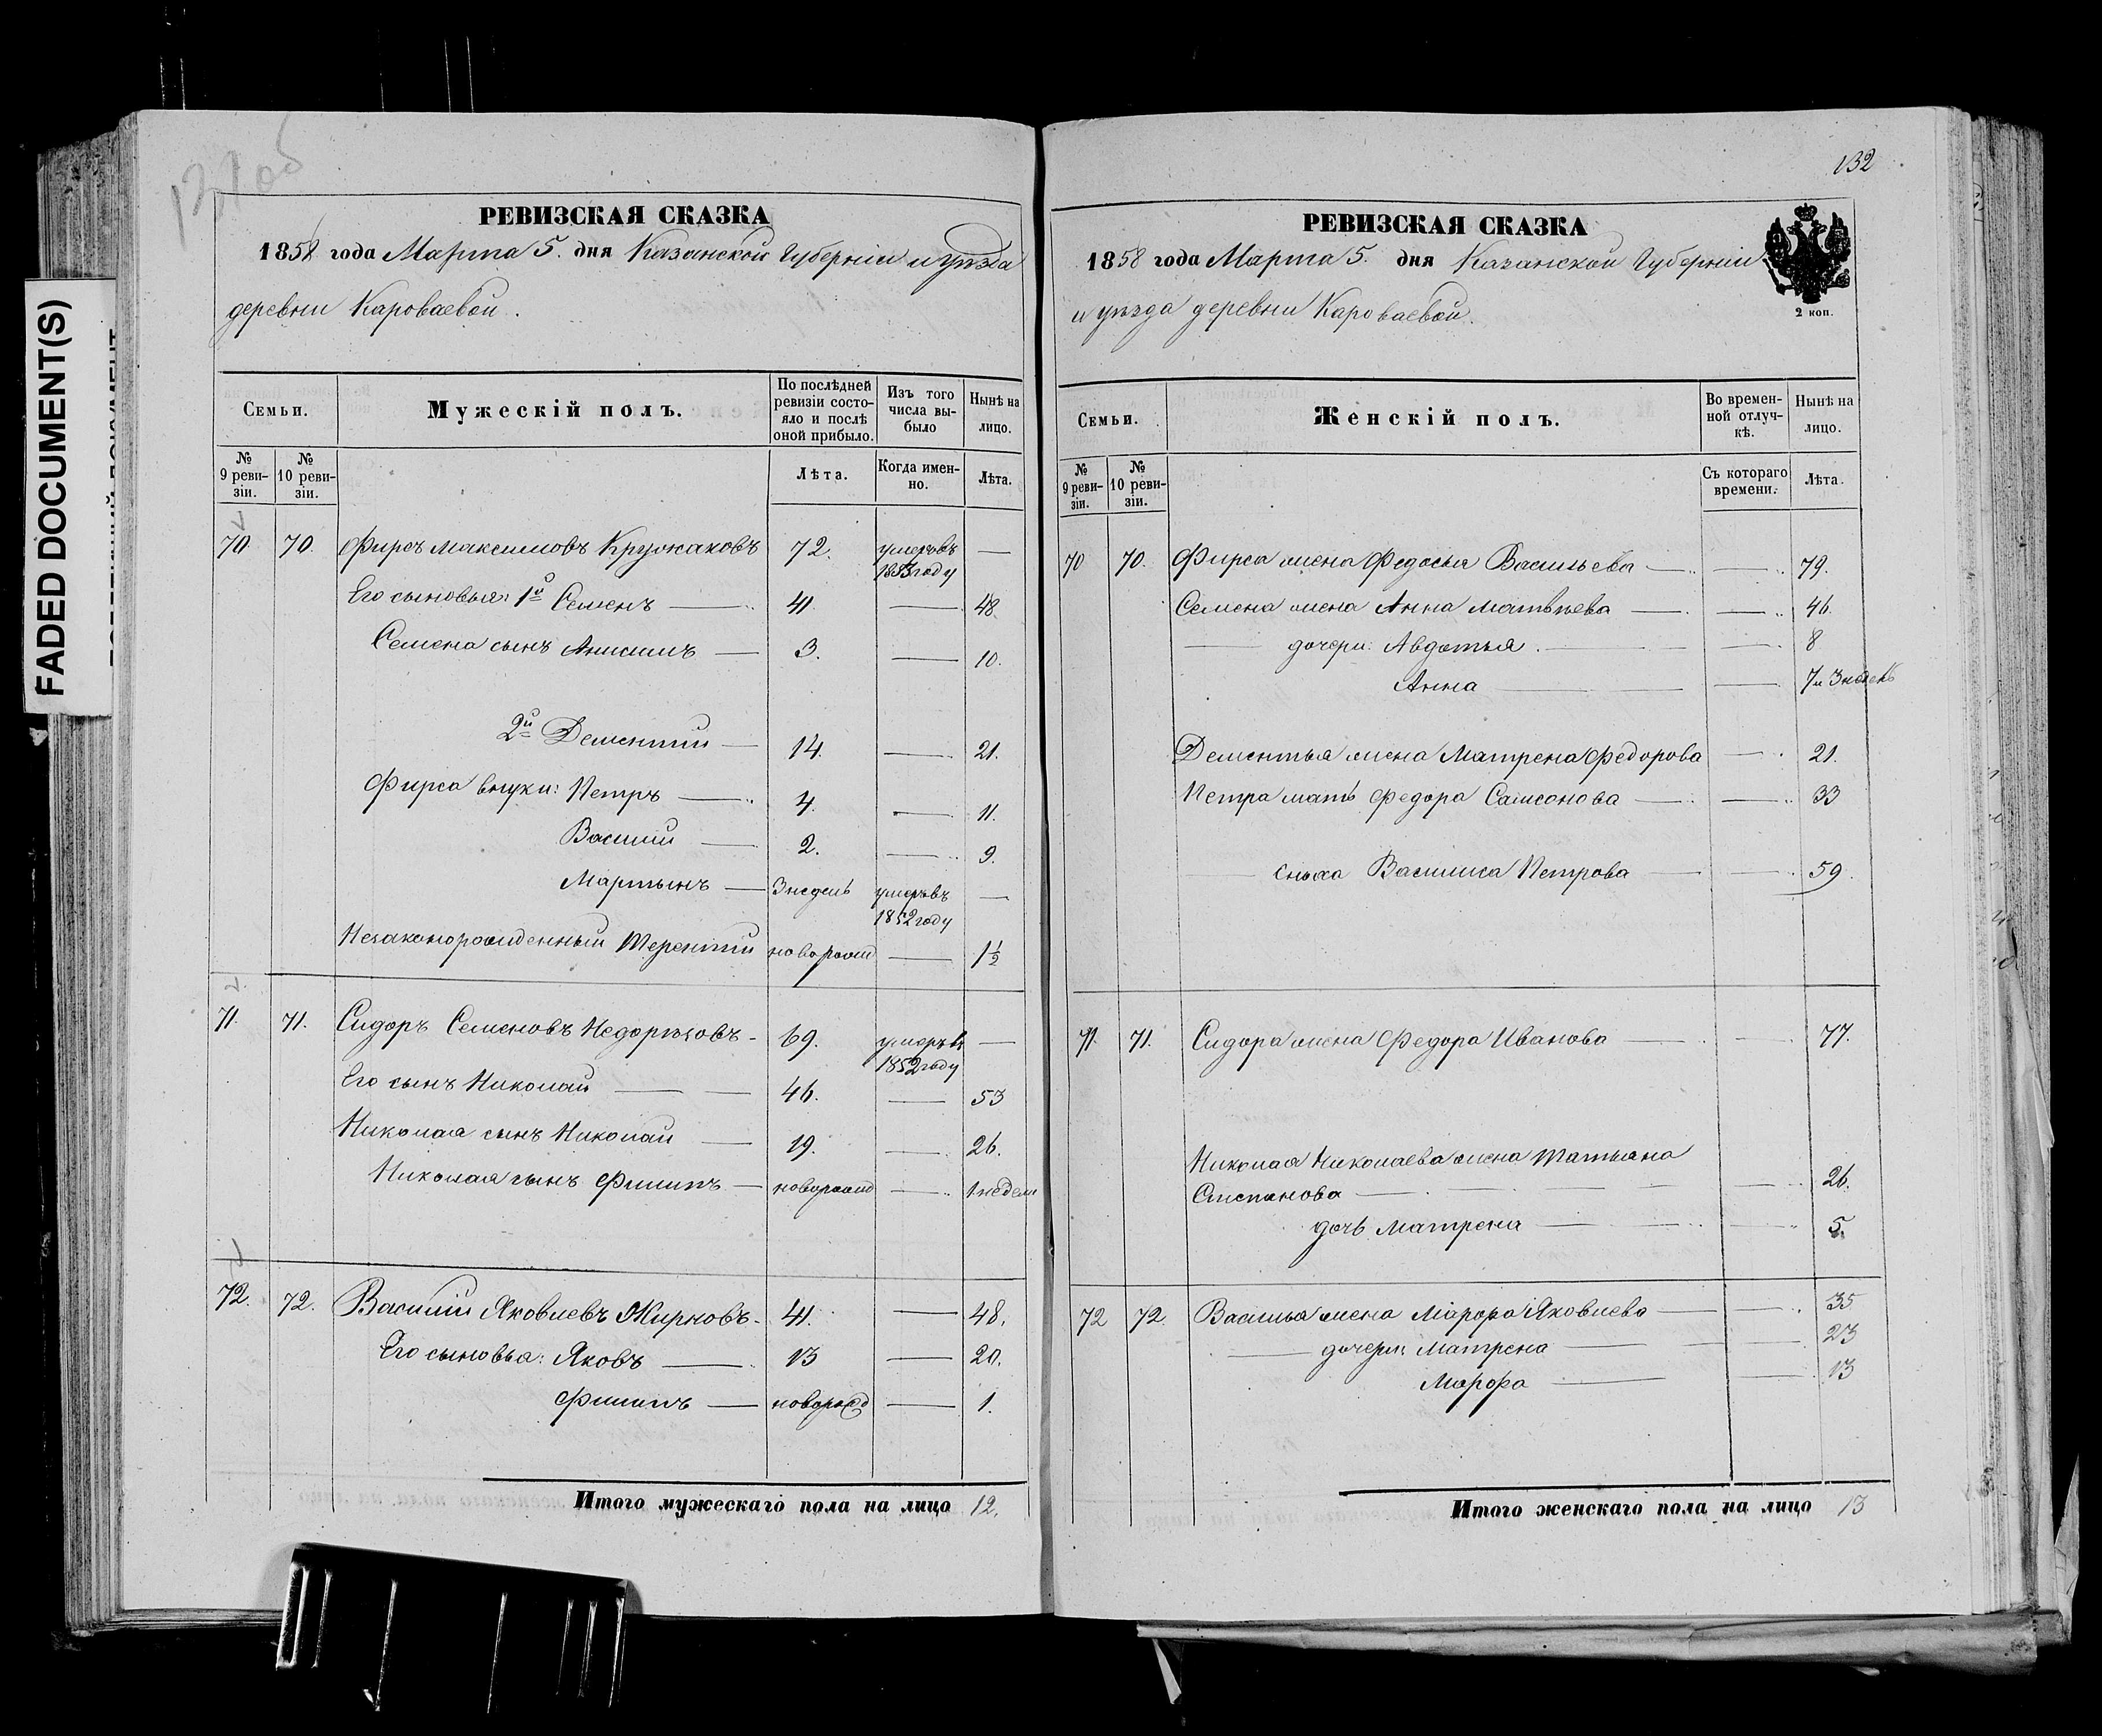 FADED DOCUMENT(S)
131 об
РЕВИЗСКАЯ СКАЗКА
1858 года Марта 5. дня Казанской Губерніи и уѣзда
деревни Кароваевой.
Семьи.
Мужескій полъ.
По послѣдней ревизіи состояло и послѣ оной прибыло.
Изъ того числа выбыло
Нынѣ на лицо.
№ 9 ревизіи.
№ 10 ревизіи.
Лѣта.
Когда именно.
Лѣта.
70. 70. Фирсъ Максимовъ Кружаковъ 72. умеръ въ 1853 году —
Его сыновья: 1й Семенъ — 41. — 48.
Семена сынъ Анисимъ — 3. — 10.
2й Дементий — 14. — 21.
Фирса внуки: Петръ — 4. — 11.
Василий — 2. — 9.
Мартынъ — 3 недель умеръ въ 1852 году —
Незаконорожденный Терентий новорожд — 1½
71. 71. Сидоръ Семеновъ Недорѣзовъ - 69. умеръ въ 1852 году —
Его сынъ Николай — 46. — 53
Николая сынъ Николай — 19. — 26.
Николая сынъ Филипъ — новорожд — 1 недели
72. 72. Василий Яковлевъ Жирновъ - 41. — 48.
Его сыновья: Яковъ — 13 — 20.
Филипъ — новорожд — 1.
Итого мужескаго пола на лицо 12.
132
РЕВИЗСКАЯ СКАЗКА
1858 года Марта 5. дня Казанской Губерніи
и уѣзда деревни Кароваевой.
2 коп.
Семьи.
Женскій полъ.
Во временной отлучкѣ.
Нынѣ на лицо.
№ 9 ревизіи.
№ 10 ревизіи.
Съ котораго времени.
Лѣта.
70 70. Фирса жена Федосья Васильева — — 79.
Семена жена Анна Матвѣева — — 46.
— дочери: Авдотья — — 8
Анна — — 7 и 3 недель
Дементья жена Матрена Федорова — 21.
Петра мать Федора Самсонова — — 33
— сноха Василиса Петрова — — 59.
71. 71. Сидора жена Федора Иванова — — 77.
Николая Николаева жена Татьяна
Степанова — — 26.
дочь Матрена — — 5.
72 72. Василья жена Марфа Яковлева — — 35
— дочери: Матрена — — 23
Марфа — — 13
Итого женскаго пола на лицо 13